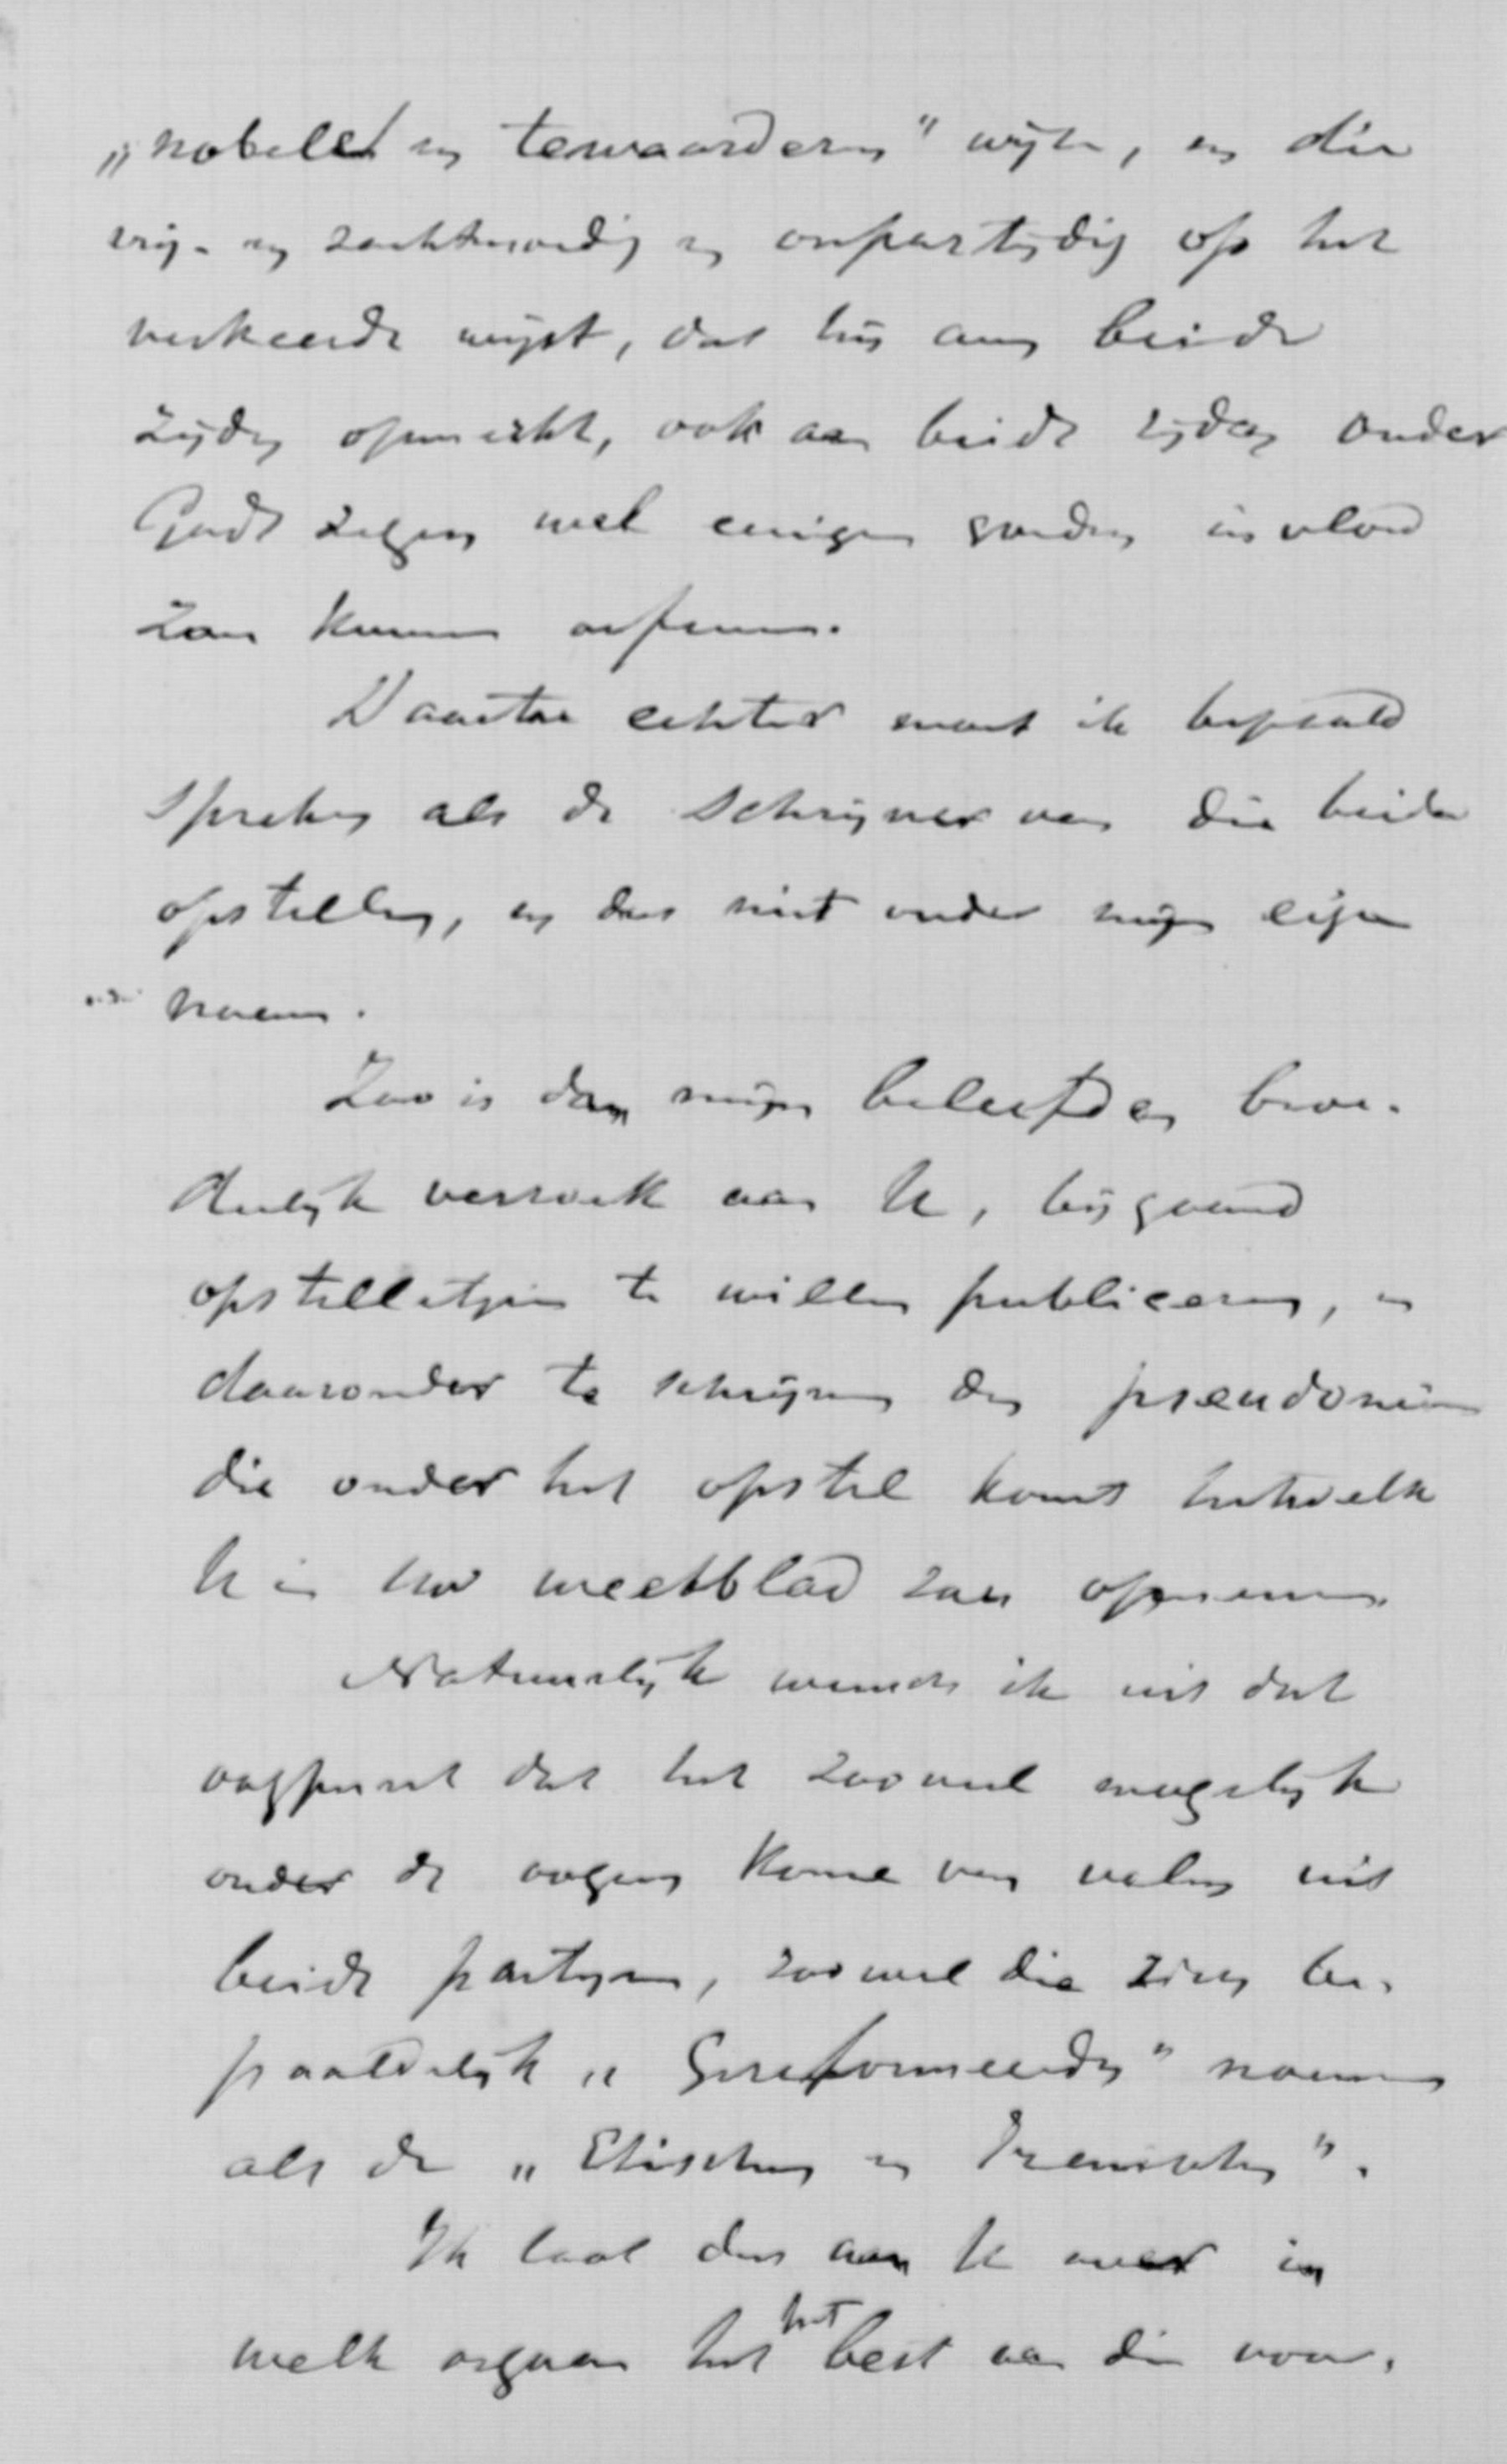 „nobele en te waarderen" wijze, en die
vrij- en zachtmoedig en onpartijdig op het
verkeerde wijst, dat hij aan beide
zijden opmerkt, ook aan beide zijden onder
Gods zegen wel eenigen goeden invloed
zou kunnen oefenen.
Daartoe echter moet ik bepaald
spreken als de schrijver van die beide
opstellen, en dus niet onder mijn eigen
naam.
Zoo is dan mijn beleefd en broe-
derlijk verzoek aan U, bijgaand
opstelletje te willen publiceeren, en
daaronder te schrijven den pseudoniem
die onder het opstel komt hetwelk
U in Uw weekblad zal opnemen.
Natuurlijk wensch ik uit dat
oogpunt dat het zooveel mogelijk
onder de oogen kome van velen uit
beide partijen, zoowel die zich be-
paaldelijk „Gereformeerden" noemen
als de „Ethischen en Irenischen".
Ik laat dus aan U over in
welk orgaan het het best aan die voor-